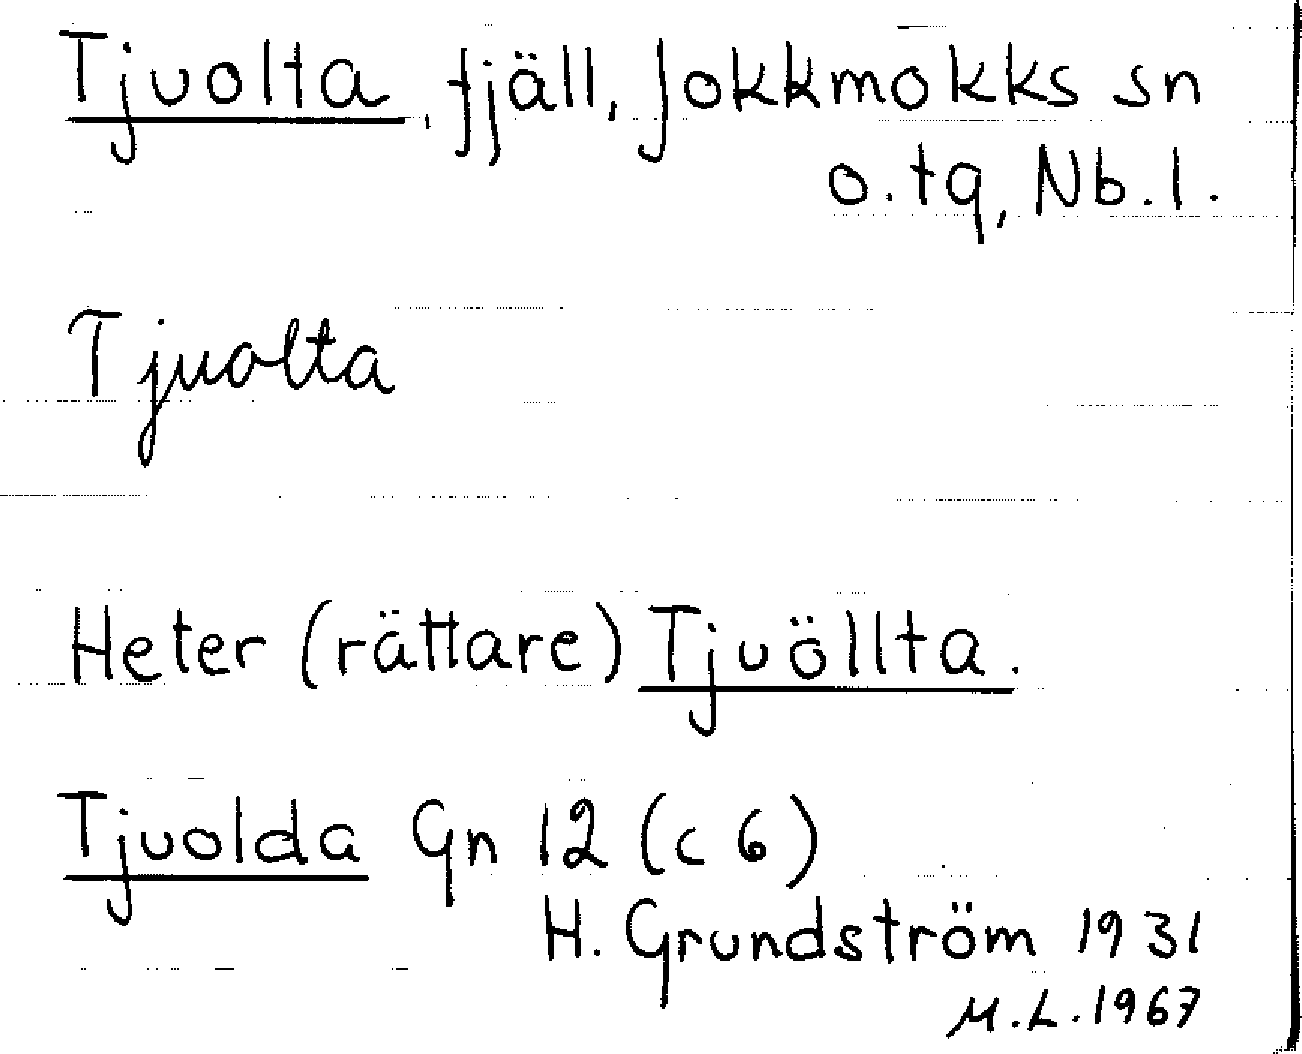 Tjuolta, fjäll, Jokkmokks sn
o. tg, Nb. l.
Tjuolta
Heter (rättare) Tjuöllta.
Tjuolda Gn 12 (c 6)
H. Grundström 1931
M.L. 1967